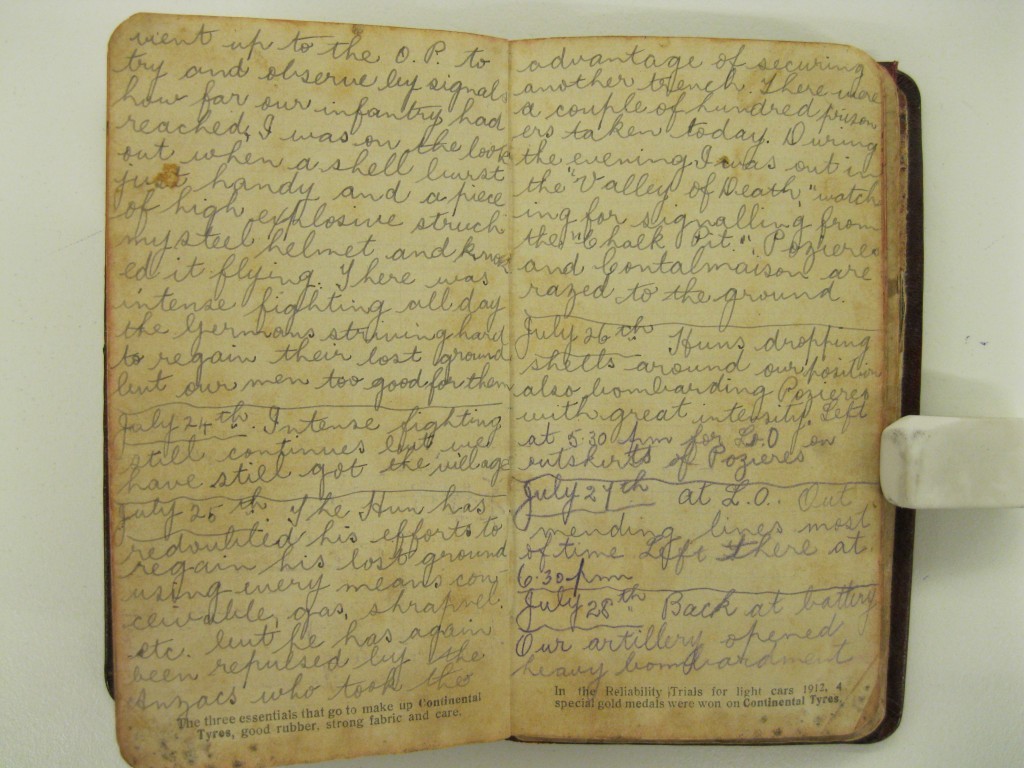 went up to the O.P. to
try and observe by signals
how far our infantry had
reached, I was on the look
out when a shell burst
just handy and a piece
of high explosive struck
my steel helmet and knock
ed it flying. There was
intense fighting all day
the Germans striving hard
to regain their lost ground
but our men too good for them
July 24th. Intense fighting
still continues but we
have still got the village
July 25th The Hun has
redoubled his efforts to
regain his lost ground
using every means con
ceivable, gas, shrapnel.
etc. but he has again
been repulsed by the
Anzacs who took the
The three essentials that go to make up Continental
Tyres, good rubber, strong fabric and care.
advantage of securing
another trench. There were
a couple of hundred prison
ers taken today. During
the evening I was out in
the "Valley of Death," watch
ing for signalling from
the "Chalk Pit." Pozieres
and Contalmaison are
razed to the ground.
July 26th Huns dropping
shells around our position
also bombarding Pozieres
with great intensity. Left
at 5.30 pm for L.O on
outskirts of Pozieres
July 27th at L.O. Out
mending lines most
of time Left there at
6.30 pm
July 28th Back at battery
Our artillery opened
heavy bombardment
In the Reliability Trials for light cars 1912, 4
special gold medals were won on Continental Tyres.